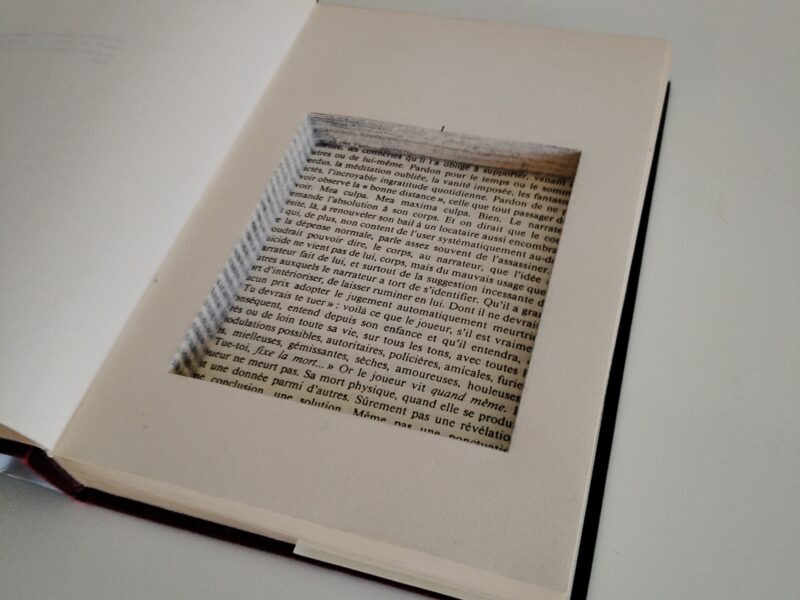 les conneries qu'il l'a obligé à supporter, venant
utres ou de lui-même. Pardon pour le temps ou le somm
erdus, la méditation oubliée, la vanité imposée, les fantasm
actés, l'incroyable ingratitude quotidienne. Pardon de ne p
voir observé la « bonne distance », celle que tout passager d
voir. Mea culpa. Mea maxima culpa. Bien. Le narrate
emande l'absolution à son corps. Et on dirait que le cor
ésite, là, à renouveler son bail à un locataire aussi encombra
t qui, de plus, non content de l'user systématiquement au-de
e la dépense normale, parle assez souvent de l'assassiner.
oudrait pouvoir dire, le corps, au narrateur, que l'idée
uicide ne vient pas de lui, corps, mais du mauvais usage que
arrateur fait de lui, et surtout de la suggestion incessante d
utres auxquels le narrateur a tort de s'identifier. Qu'il a gra
ort d'intérioriser, de laisser ruminer en lui. Dont il ne devrait
ucun prix adopter le jugement automatiquement meurtri
Tu devrais te tuer » : voilà ce que le joueur, s'il est vraime
onséquent, entend depuis son enfance et qu'il entendra,
rès ou de loin toute sa vie, sur tous les tons, avec toutes
modulations possibles, autoritaires, policières, amicales, furie
s, mielleuses, gémissantes, sèches, amoureuses, houleuses
Tue-toi, fixe la mort... » Or le joueur vit quand même.
ueur ne meurt pas. Sa mort physique, quand elle se produ
t une donnée parmi d'autres. Sûrement pas une révélatio
ne conclusion, une solution. Même pas une ponctuatio